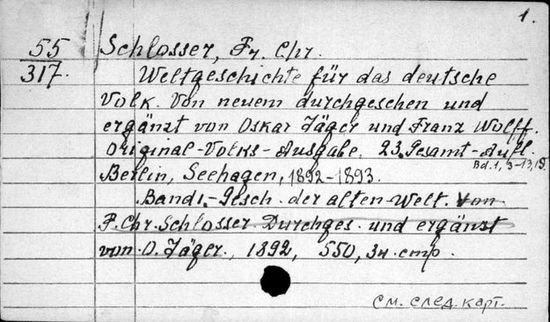 1.
55
317.
Schlosser, Fr. Chr.
Weltgeschichte für das deutsche
Volk. Von neuem durchgesehen und
ergänzt von Oskar Jäger und Franz Wolff.
Original-Volks-Ausgabe. 23. Gesamt-Aufl.
Berlin, Seehagen, 1892-1893.
Bd. 1, 3-13,
Band 1. Gesch. der alten Welt. Von
F. Chr. Schlosser Durchges. und ergänzt
von O. Jäger, 1892, 550, 34 стр.
см. след. карт.